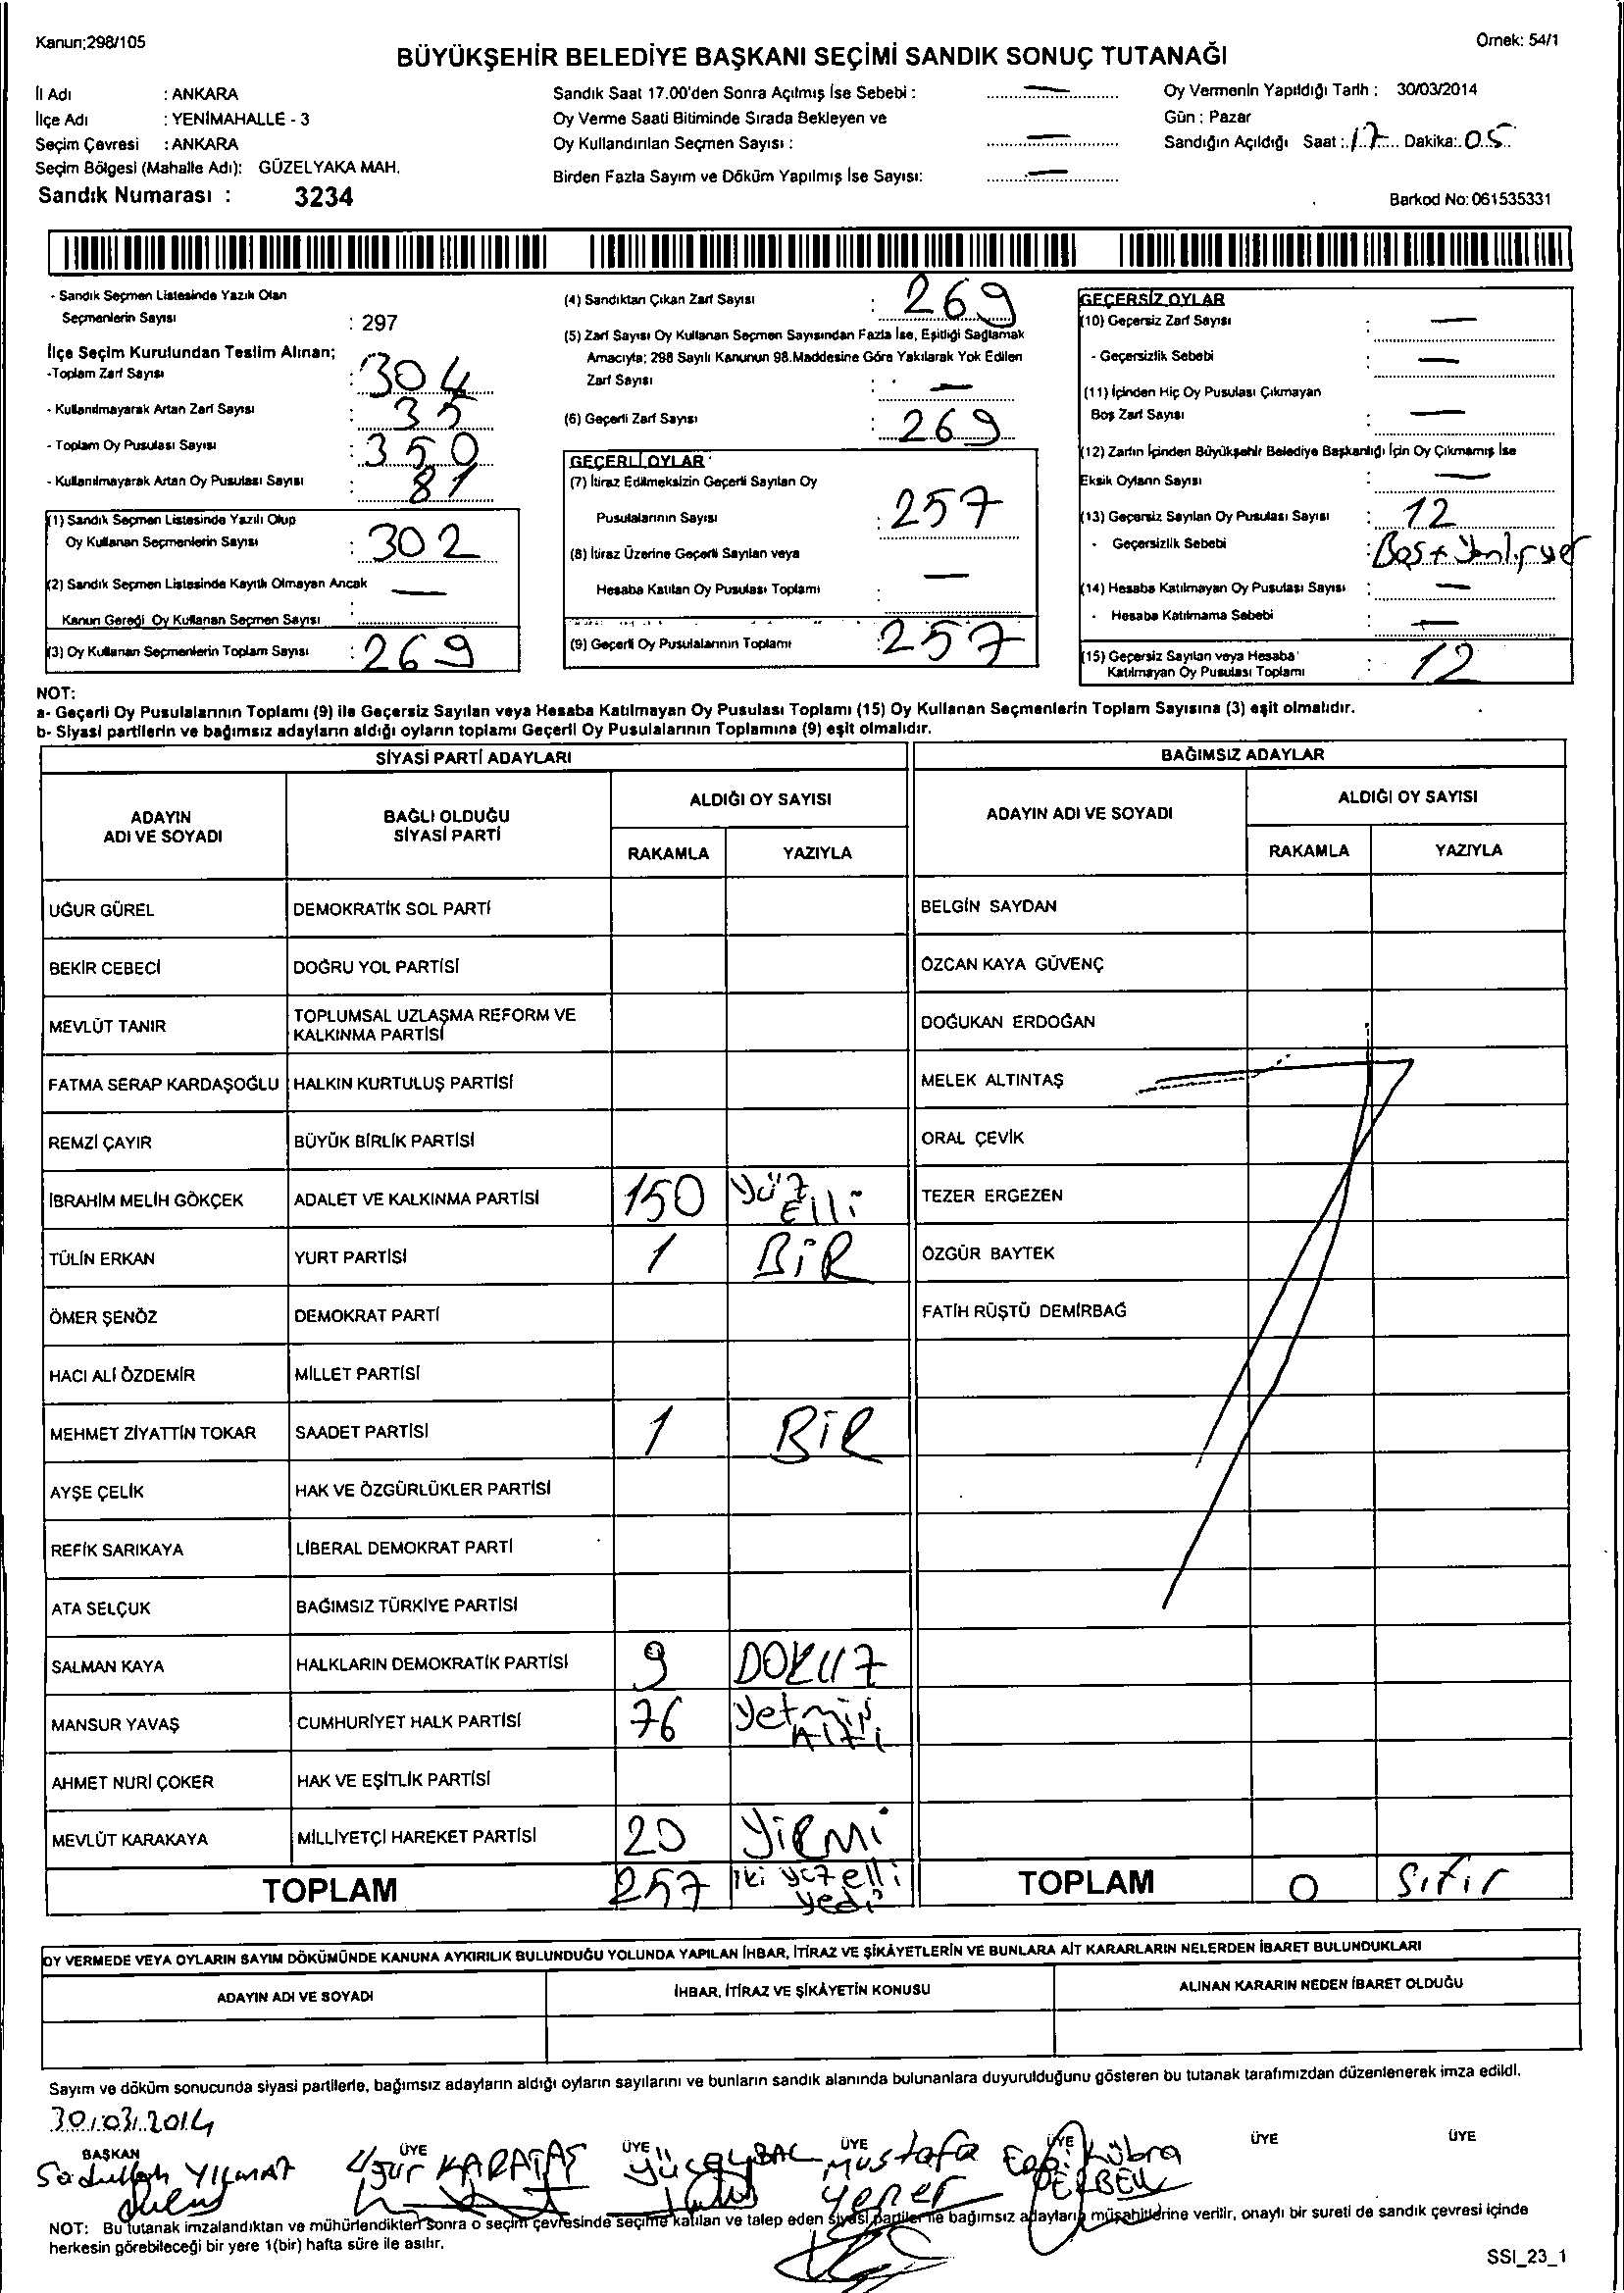 Kanun;298/105
Örnek: 54/1
BÜYÜKŞEHİR BELEDİYE BAŞKANI SEÇİMİ SANDIK SONUÇ TUTANAĞI
İl Adı : ANKARA
İlçe Adı : YENİMAHALLE - 3
Seçim Çevresi : ANKARA
Seçim Bölgesi (Mahalle Adı): GÜZELYAKA MAH.
Sandık Numarası : 3234
Sandık Saat 17.00'den Sonra Açılmış İse Sebebi : —
Oy Verme Saati Bitiminde Sırada Bekleyen ve
Oy Kullandırılan Seçmen Sayısı : —
Birden Fazla Sayım ve Döküm Yapılmış İse Sayısı: —
Oy Vermenin Yapıldığı Tarih : 30/03/2014
Gün : Pazar
Sandığın Açıldığı Saat : 17 Dakika: 05
Barkod No: 061535331
- Sandık Seçmen Listesinde Yazılı Olan
Seçmenlerin Sayısı : 297
İlçe Seçim Kurulundan Teslim Alınan;
-Toplam Zarf Sayısı : 304
- Kullanılmayarak Artan Zarf Sayısı : 35
- Toplam Oy Pusulası Sayısı : 350
- Kullanılmayarak Artan Oy Pusulası Sayısı : 81
(1) Sandık Seçmen Listesinde Yazılı Olup
Oy Kullanan Seçmenlerin Sayısı : 302
(2) Sandık Seçmen Listesinde Kayıtlı Olmayan Ancak —
Kanun Gereği Oy Kullanan Seçmen Sayısı :
(3) Oy Kullanan Seçmenlerin Toplam Sayısı : 269
(4) Sandıktan Çıkan Zarf Sayısı : 269
(5) Zarf Sayısı Oy Kullanan Seçmen Sayısından Fazla İse, Eşitliği Sağlamak
Amacıyla; 298 Sayılı Kanunun 98.Maddesine Göre Yakılarak Yok Edilen
Zarf Sayısı : —
(6) Geçerli Zarf Sayısı : 269
GEÇERLİ OYLAR
(7) İtiraz Edilmeksizin Geçerli Sayılan Oy
Pusulalarının Sayısı : 257
(8) İtiraz Üzerine Geçerli Sayılan veya
Hesaba Katılan Oy Pusulası Toplamı : —
(9) Geçerli Oy Pusulalarının Toplamı : 257
GEÇERSİZ OYLAR
(10) Geçersiz Zarf Sayısı : —
- Geçersizlik Sebebi : —
(11) İçinden Hiç Oy Pusulası Çıkmayan
Boş Zarf Sayısı : —
(12) Zarfın İçinden Büyükşehir Belediye Başkanlığı İçin Oy Çıkmamış İse
Eksik Oyların Sayısı : —
(13) Geçersiz Sayılan Oy Pusulası Sayısı : 12
- Geçersizlik Sebebi : Boş + Yanlış yer
(14) Hesaba Katılmayan Oy Pusulası Sayısı : —
- Hesaba Katılmama Sebebi : —
(15) Geçersiz Sayılan veya Hesaba
Katılmayan Oy Pusulası Toplamı : 12
NOT:
a- Geçerli Oy Pusulalarının Toplamı (9) ile Geçersiz Sayılan veya Hesaba Katılmayan Oy Pusulası Toplamı (15) Oy Kullanan Seçmenlerin Toplam Sayısına (3) eşit olmalıdır.
b- Siyasi partilerin ve bağımsız adayların aldığı oyların toplamı Geçerli Oy Pusulalarının Toplamına (9) eşit olmalıdır.
SİYASİ PARTİ ADAYLARI
ADAYIN ADI VE SOYADI
BAĞLI OLDUĞU SİYASİ PARTİ
ALDIĞI OY SAYISI
RAKAMLA YAZIYLA
UĞUR GÜREL DEMOKRATİK SOL PARTİ
BEKİR CEBECİ DOĞRU YOL PARTİSİ
MEVLÜT TANIR TOPLUMSAL UZLAŞMA REFORM VE KALKINMA PARTİSİ
FATMA SERAP KARDAŞOĞLU HALKIN KURTULUŞ PARTİSİ
REMZİ ÇAYIR BÜYÜK BİRLİK PARTİSİ
İBRAHİM MELİH GÖKÇEK ADALET VE KALKINMA PARTİSİ 150 Yüz Elli
TÜLİN ERKAN YURT PARTİSİ 1 BİR
ÖMER ŞENÖZ DEMOKRAT PARTİ
HACI ALİ ÖZDEMİR MİLLET PARTİSİ
MEHMET ZİYATTİN TOKAR SAADET PARTİSİ 1 BİR
AYŞE ÇELİK HAK VE ÖZGÜRLÜKLER PARTİSİ
REFİK SARIKAYA LİBERAL DEMOKRAT PARTİ
ATA SELÇUK BAĞIMSIZ TÜRKİYE PARTİSİ
SALMAN KAYA HALKLARIN DEMOKRATİK PARTİSİ 9 DOKUZ
MANSUR YAVAŞ CUMHURİYET HALK PARTİSİ 76 Yetmiş Altı
AHMET NURİ ÇOKER HAK VE EŞİTLİK PARTİSİ
MEVLÜT KARAKAYA MİLLİYETÇİ HAREKET PARTİSİ 20 YİRMİ
TOPLAM 257 iki yüz elli yedi
BAĞIMSIZ ADAYLAR
ADAYIN ADI VE SOYADI
ALDIĞI OY SAYISI
RAKAMLA YAZIYLA
BELGİN SAYDAN
ÖZCAN KAYA GÜVENÇ
DOĞUKAN ERDOĞAN
MELEK ALTINTAŞ
ORAL ÇEVİK
TEZER ERGEZEN
ÖZGÜR BAYTEK
FATİH RÜŞTÜ DEMİRBAĞ
TOPLAM 0 Sıfır
OY VERMEDE VEYA OYLARIN SAYIM DÖKÜMÜNDE KANUNA AYKIRILIK BULUNDUĞU YOLUNDA YAPILAN İHBAR, İTİRAZ VE ŞİKÂYETLERİN VE BUNLARA AİT KARARLARIN NELERDEN İBARET BULUNDUKLARI
ADAYIN ADI VE SOYADI
İHBAR, İTİRAZ VE ŞİKÂYETİN KONUSU
ALINAN KARARIN NEDEN İBARET OLDUĞU
Sayım ve döküm sonucunda siyasi partilerle, bağımsız adayların aldığı oyların sayılarını ve bunların sandık alanında bulunanlara duyurulduğunu gösteren bu tutanak tarafımızdan düzenlenerek imza edildi.
30.03.2014
BAŞKAN ÜYE ÜYE ÜYE ÜYE ÜYE ÜYE
Sadullah YILMAZ Uğur KARATAŞ Yücel BAL Mustafa Yener Kübra
NOT: Bu tutanak imzalandıktan ve mühürlendikten sonra o seçim çevresinde seçime katılan ve talep eden siyasi partiler ile bağımsız adayların müşahitlerine verilir, onaylı bir sureti de sandık çevresi içinde
herkesin görebileceği bir yere 1(bir) hafta süre ile asılır.
SSI_23_1